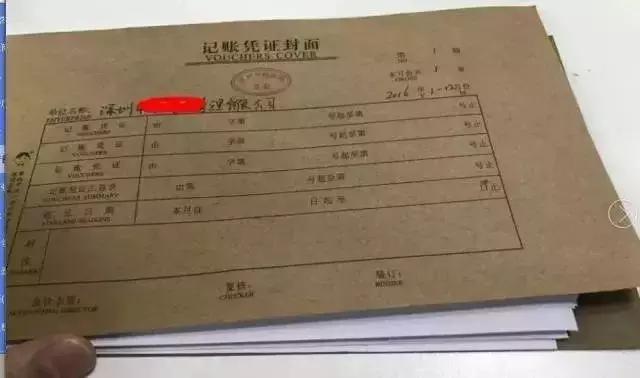 记账凭证封面
VOUCHERS COVER
第 1 册
NO
本月共 1 册
单位名称: 深圳市 管理有限公司
ENTERPRISE
2016 年 1-12 月份
记账凭证 由 字第 号起至第 号止
VOUCHERS
记账凭证 由 字第 号起至第 号止
VOUCHERS
记账凭证 由 字第 号起至第 号止
VOUCHERS
记账凭证汇总表 由第 号起至第 号止
VOUCHERS SUMMARY
起讫日期 本月自 日起至 日止
附
注
会计主管:
ACCOUNTING DIRECTOR
复核:
CHECKER
装订:
BINDER